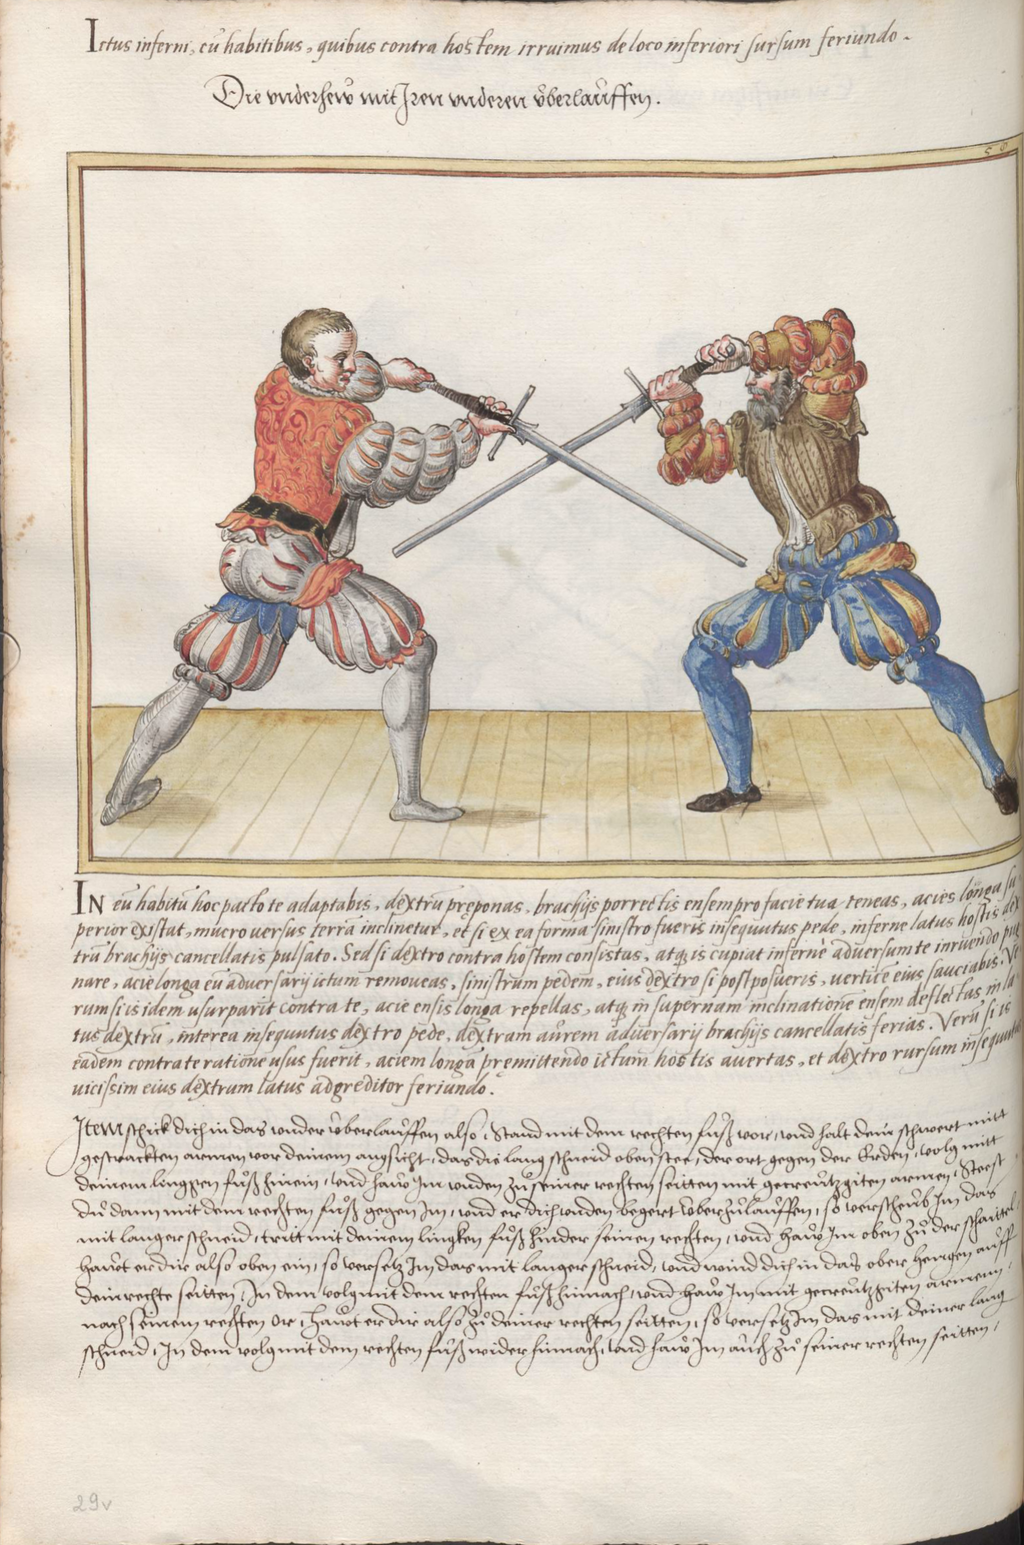 Ictus inferni, cū habitibus, quibus contra hostem irruimus de loco inferiori sursum feriundo.
Die vnderhew mit Iren vnderen v̊berlauffen.
59
IN eū habitū hoc pacto te adaptabis, dextrū pręponas, brachijs porrectis ensem pro facie tua teneas, acies longa su
perior existat, mucro versus terrā inclinetur, et si ex ea forma sinistro fueris insequutus pede, inferne latus hostis dex
trū brachijs cancellatis pulsato. Sed si dextro contra hostem consistas, atq; is cupiat infernè aduersum te irruendo pug
nare, acie longa eū aduersarij ictum remoueas, sinistrum pedem, eius dextro si postposueris, vertice eius sauciabis. Ve
rum si is idem usurparit contra te, acie ensis longa repellas, atq; in supernam inclinationē ensem deflectas in la
tus dextrū, interea insequutus dextro pede, dextram aurem aduersarij brachijs cancellatis ferias. Verū si is
eadem contra te ratione usus fuerit, aciem longā pręmittendo ictum hostis auertas, et dextro rursum insequutus
vicissim eius dextrum latus adgreditor feriundo.
Item schick dich in das vnder v̊berlauffen also, Stand mit dem rechten fuͦß vor, vnd halt dein schwert mitt
gestrackten armen vor deinem angsicht, das die lang schneid oben stee, der ort gegen der Erden, volg mitt
deinem lingken fuͦß hinein, vnd haw Im vnden zuͦ seiner rechten seitten mit gecreutzgiten armen, Steest
du dann mit dem rechten fuͦß gegen Im, vnd er dich vnden begert v̊berzulauffen, so verscheub Im das
mit langer schneid, tritt mit deinem lingken fuͦß hinder seinen rechten, vnd haw Im oben zuͦ der schaittel,
hawt er dir also oben ein, so versetz Im das mit langer schneid, vnd wind dich in das ober hengen auff
dein rechte seitten, In dem volg mit dem rechten fuͦß hinnach, vnd haw Im mit gecreutzgiten armenn,
nach seinem rechten Or, hawt er dir also zuͦ deiner rechten seitten, so versetz Im das mit deiner lang
schneid, In dem volg mit dem rechten fuͦß wider hinnach, vnd haw Im auch zuͦ seiner rechten seitten,
29v